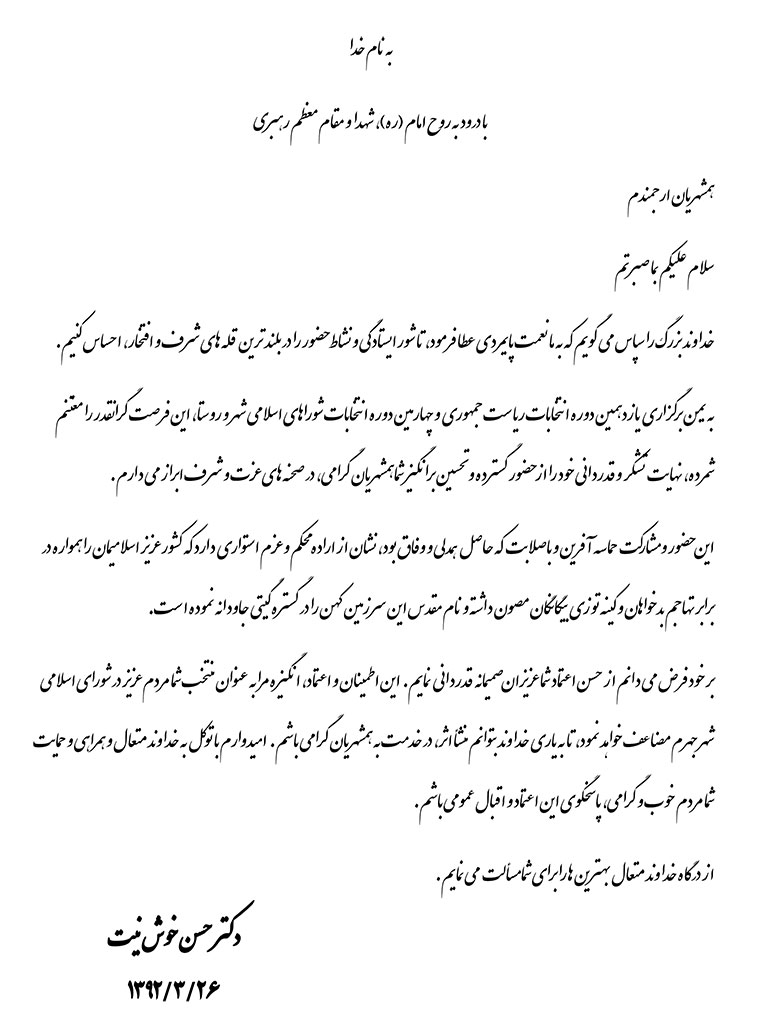 به نام خدا
با درود به روح امام (ره)، شهدا و مقام معظم رهبری
همشهریان ارجمندم
سلام علیکم بما صبرتم
خداوند بزرگ را سپاس می گویم که به ما نعمت پایمردی عطا فرمود، تا شور ایستادگی و نشاط حضور را در بلند ترین قله های شرف و افتخار، احساس کنیم.
به یمن برگزاری یازدهمین دوره انتخابات ریاست جمهوری و چهارمین دوره انتخابات شوراهای اسلامی شهر و روستا، این فرصت گرانقدر را مغتنم
شمرده، نهایت تشکر و قدردانی خود را از حضور گسترده و تحسین برانگیز شما همشهریان گرامی، در صحنه های عزت و شرف ابراز می دارم.
این حضور و مشارکت حماسه آفرین و باصلابت که حاصل همدلی و وفاق بود، نشان از اراده محکم و عزم استواری دارد که کشور عزیز اسلامیمان را همواره در
برابر تهاجم بدخواهان و کینه توزی بیگانگان مصون داشته و نام مقدس این سرزمین کهن را در گستره گیتی جاودانه نموده است.
بر خود فرض می دانم از حسن اعتماد شما عزیزان صمیمانه قدردانی نمایم. این اطمینان و اعتماد، انگیزه مرا به عنوان منتخب شما مردم عزیز در شورای اسلامی
شهر جهرم مضاعف خواهد نمود، تا به یاری خداوند بتوانم منشأ اثر، در خدمت به همشهریان گرامی باشم. امیدوارم با توکل به خداوند متعال و همراهی و حمایت
شما مردم خوب و گرامی، پاسخگوی این اعتماد و اقبال عمومی باشم.
از درگاه خداوند متعال بهترین ها را برای شما مسألت می نمایم.
دکتر حسن خوش نیت
۱۳۹۲/۳/۲۶